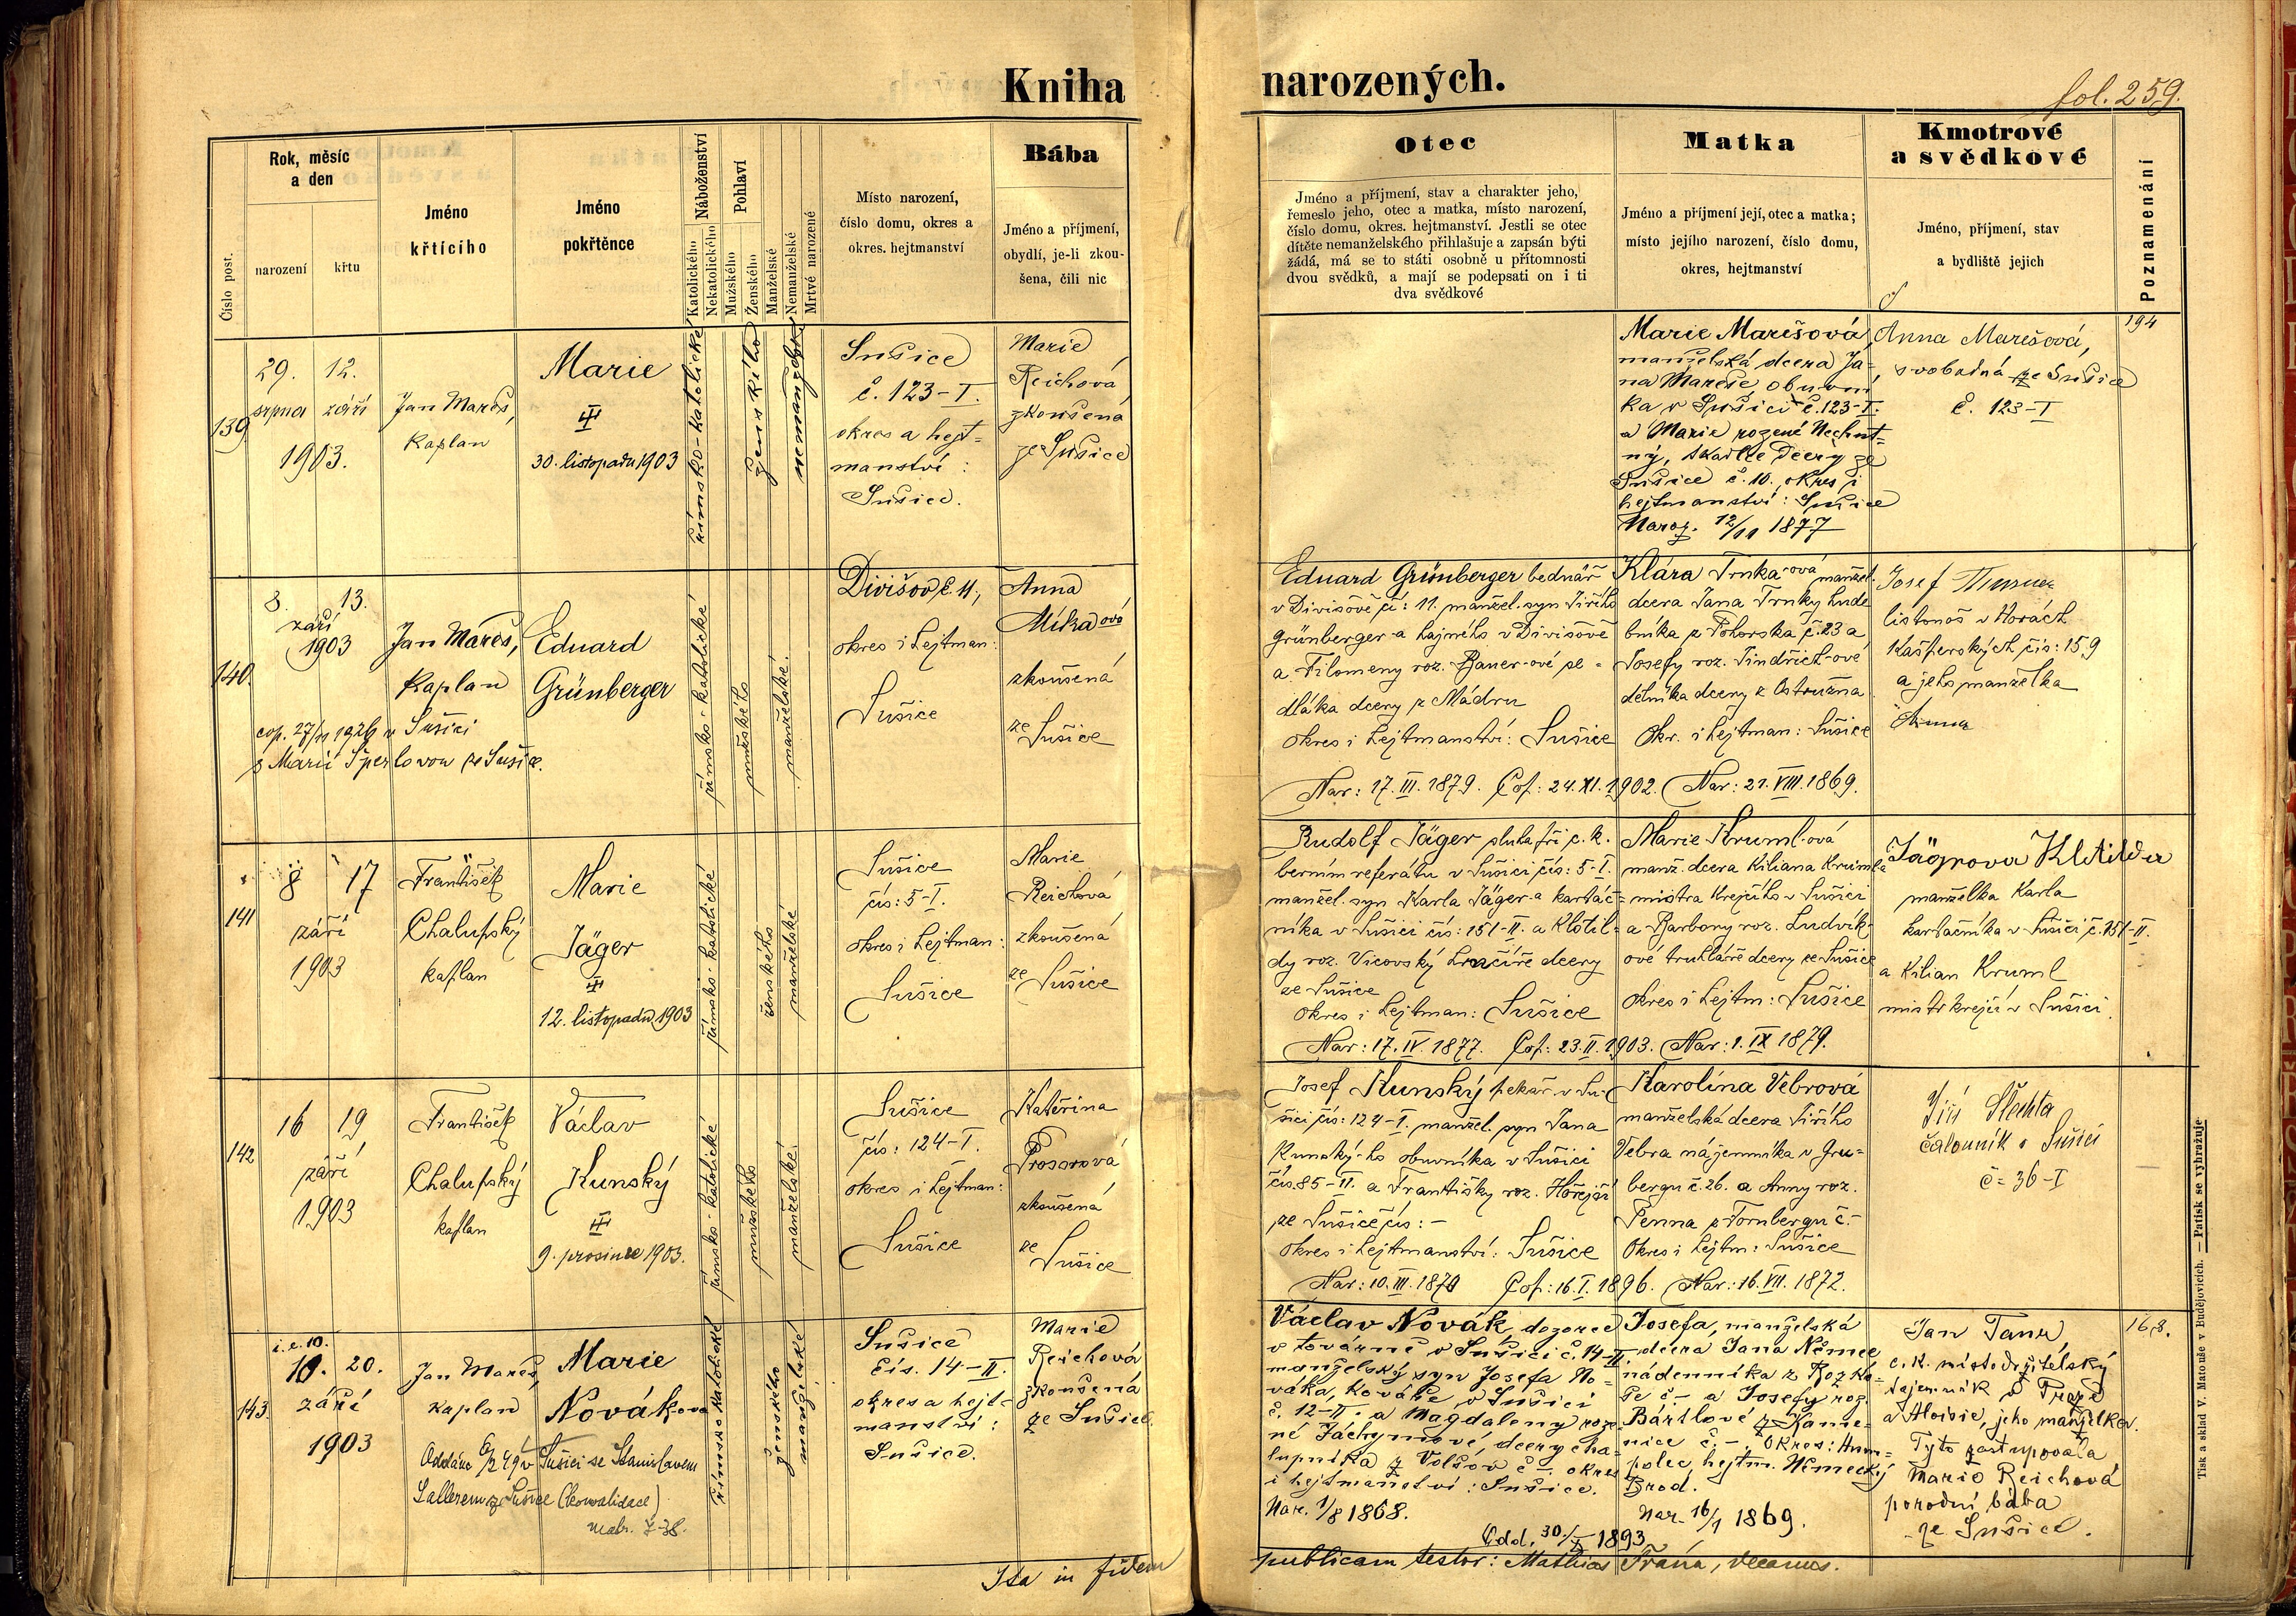 Kniha narozených.
fol. 259.
Číslo post.
Rok, měsíc
a den
narození
křtu
Jméno
křtícího
Jméno
pokřtěnce
Náboženství
Katolického
Nekatolického
Pohlaví
Mužského
Ženského
Manželské
Nemanželské
Mrtvě narozené
Místo narození,
číslo domu, okres a
okres. hejtmanství
Bába
Jméno a příjmení,
obydlí, je-li zkou-
šena, čili nic
Otec
Jméno a příjmení, stav a charakter jeho,
řemeslo jeho, otec a matka, místo narození,
číslo domu, okres. hejtmanství. Jestli se otec
dítěte nemanželského přihlašuje a zapsán býti
žádá, má se to státi osobně u přítomnosti
dvou svědků, a mají se podepsati on i ti
dva svědkové
Matka
Jméno a příjmení její, otec a matka;
místo jejího narození, číslo domu,
okres, hejtmanství
Kmotrové
a svědkové
Jméno, příjmení, stav
a bydliště jejich
Poznamenání
139
29. 12.
srpna září
1903.
Jan Mareš,
kaplan
Marie
30. listopadu 1903
římsko-katolické
ženského
nemanželské
Sušice
č. 123-I.
okres a hejt-
manství:
Sušice.
Marie
Reichová
zkoušená
ze Sušice
Marie Marešová,
manželská dcera Ja-
na Mareše obuvní
ka v Sušici č. 123-I.
a Marie rozené Nechut-
ný, tkadlce dcery ze
Sušice č. 10, okres i
hejtmanství: Sušice
Naroz. 12/11 1877
Anna Marešová,
svobodná ze Sušice
č. 123-I
194
140.
8. 13.
září
1903
Jan Mareš,
kaplan
Eduard
Grünberger
cop. 27/11 1926 v Sušici
s Marií Šperlovou ze Sušice.
římsko-katolické
mužského
manželské.
Divišov č. 11,
okres i hejtman:
Sušice
Anna
Míka ová
zkoušená
ze
Sušice
Eduard Grünberger bednář
v Divišově čí: 11. manžel. syn Jiřího
Grünberger-a hajného v Divišově
a Filomeny roz. Bauer-ové se-
dláka dcery z Mádru
okres i hejtmanství: Sušice
Nar: 17. III. 1879. Cop: 24. XI. 1902.
Klára Trnka-ová manžel.
dcera Jana Trnky hude
bníka z Pohorska č. 23 a
Josefy roz. Jindřich-ové
dělníka dcery z Ostružna
Okr. i hejtman: Sušice
Nar: 21. VIII. 1869.
Josef
listonoš v Horách
Kašperských čís: 159
a jeho manželka
Anna
141
8 17
září
1903
František
Chalupský
kaplan
Marie
Jäger
12. listopadu 1903
římsko-katolické
ženského
manželské
Sušice
čís: 5-I.
okres i hejtman:
Sušice
Marie
Reichová
zkoušená
ze
Sušice
Rudolf Jäger sluha při c. k.
berním referátu v Sušici čís: 5-I.
manžel. syn Karla Jäger-a kartáč-
níka v Sušici čís: 151-II. a Klotil-
dy roz. Vicovský hrnčíře dcery
ze Sušice
okres i hejtman: Sušice
Nar: 17. IV. 1877. Cop: 23. II. 1903.
Marie Kruml-ová
manž. dcera Kiliana Kruml-a
mistra krejčího v Sušici
a Barbory roz. Ludvík-
ové truhláře dcery ze Sušice
okres i hejtm: Sušice
Nar: 1. IX 1879.
Jägrova Klotilda
manželka Karla
kartáčníka v Sušici č. 151-II.
a Kilian Kruml
mistr krejčí v Sušici.
142
16 19
září
1903
František
Chalupský
kaplan
Václav
Kunský
9. prosince 1903.
římsko-katolické
mužského
manželské.
Sušice
čís: 124-I.
okres i hejtman:
Sušice
Kateřina
Prosorová
zkoušená
ze
Sušice
Josef Kunský pekař v Su-
šici čís: 124-I. manžel. syn Jana
Kunský-ho obuvníka v Sušici
čís. 85-II. a Františky roz. Hořejší
ze Sušice čís: -
okres i hejtmanství: Sušice
Nar: 10. III. 1870 Cop: 16. I. 1896.
Karolína Vebrová
manželská dcera Jiřího
Vebra nájemníka v Gru-
bergu č. 26. a Anny roz.
Penna z Tornbergu č. -
Okres i hejtm: Sušice
Nar: 16. VII. 1872.
Jiří Šlechta
čalouník v Sušici
č= 36-I
143.
i. e. 10.
10. 20.
září
1903
Jan Mareš,
kaplan
Marie
Novák-ova
Oddána 6/2 49 v Sušici se Stanislavem
Sallerem ze Sušice (konvalidace)
matr. Ž-38.
římsko katolické
ženského
manželské
Sušice
čís. 14-II.
okres a hejt-
manství:
Sušice.
Marie
Reichová
zkoušená
ze Sušice.
Václav Novák, dozorce
v továrně v Sušici č. 14-II.
manželský syn Josefa No-
váka, kováře v Sušici
č. 12-II. a Magdaleny roze-
né Jáchymové, dcery cha-
lupníka z Volšov č -. okres
i hejtmanství: Sušice.
Nar. 1/8 1868.
Odd. 30./I 1893
Josefa, manželská
dcera Jana Němce
nádenníka z Rozko-
še č - a Josefy roz.
Bártlové z Kame-
nice č. -, okres: Hum-
polec hejtm. Německý
Brod.
Nar. 16/1 1869.
Jan
c. k. místodržitelský
tajemník v Praze
a Aloisie, jeho manželka.
Tyto zastupovala
Marie Reichová
porodní bába
ze Sušice.
168.
Ita in fidem publicam testor: Mathias Frána, decanus.
Tisk a sklad V. Matouše v Budějovicích. — Patisk se vyhražuje